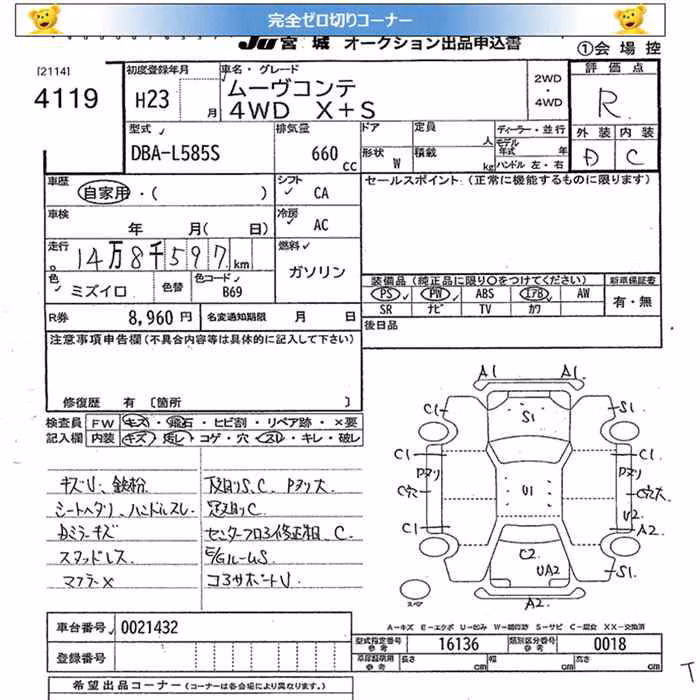 完全ゼロ切りコーナー
JU 宮城 オークション出品申込書
①会場控
[2114]
4119
初度登録年月
H23 月
車名・グレード
ムーヴコンテ
4WD X+S
2WD
・
4WD
評価点
R
外装 内装
D C
型式
DBA-L585S
排気量
660 CC
ドア 定員 人
形状 W 積載 kg
ディーラー・並行
モデル年式 年
ハンドル 左・右
車歴
自家用・( )
シフト
CA
セールスポイント:(正常に機能するものに限ります)
車検
年 月( 日)
冷房
AC
走行
14万8千597km
燃料
ガソリン
色
ミズイロ
色替
色コード
B69
装備品(純正品に限り○をつけてください)
新車保証書
PS PW ABS エアB AW
SR ナビ TV カワ
有・無
R券 8,960円
名変通知期限 月 日
後日品
注意事項申告欄(不具合内容等は具体的に記入して下さい)
修復歴 有 〔箇所 〕
検査員 FW キズ・飛石・ヒビ割・リペア跡・×要
記入欄 内装 キズ・汚レ・コゲ・穴・スレ・キレ・破レ
キズU、鉄粉
シートヘタリ、ハンドルスレ
Dミラーキズ
スタッドレス
マフラー×
下廻りS、C Pヌリ大
足廻りC
センターフロ3修正相、C
E/GルームS
コアサポートU
A1 A1
C1 S1 S1
C1 C1
Pヌリ Pヌリ
C穴 U1 C穴大
U2
C1 A2
C2
UA2 S1
スペア A2
A-キズ E-エクボ U-凹み W-補修跡 S-サビ C-腐食 XX-交換済
車台番号 0021432
型式指定番号 16136 類別区分番号 0018
登録番号
車庫証明用 長さ cm 幅 cm 高さ cm
希望出品コーナー(コーナーは各会場により異なります。)